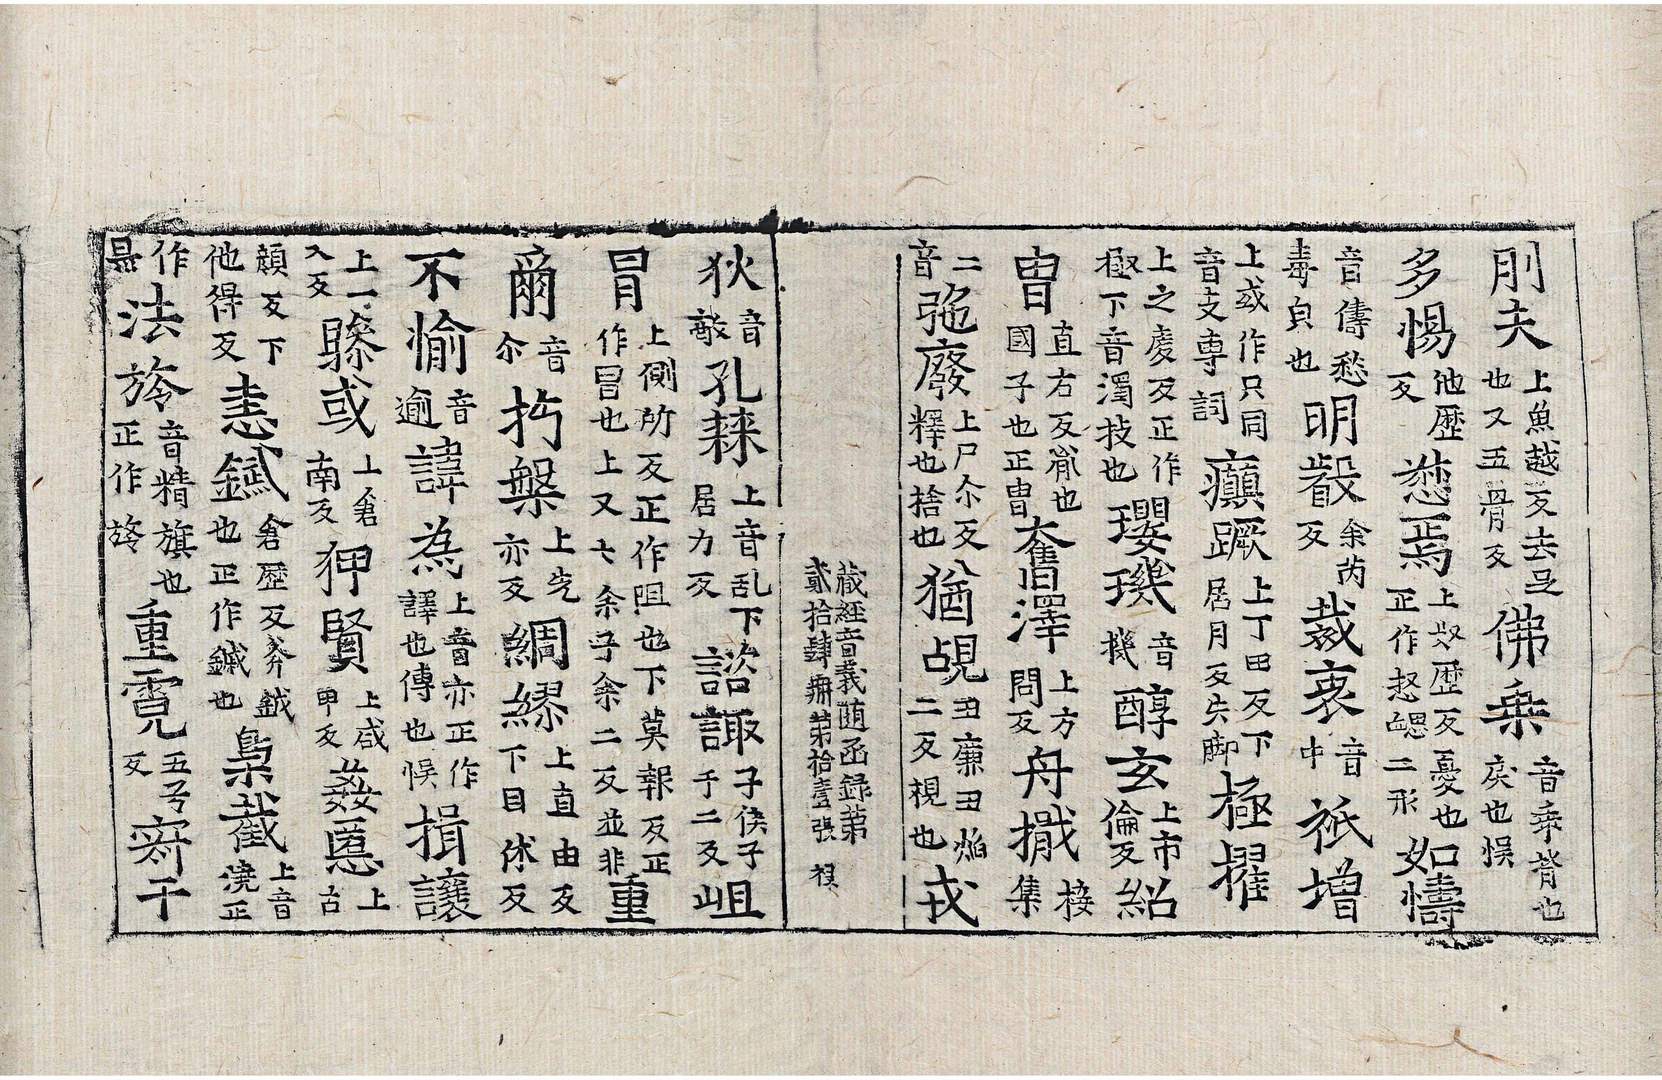 刖夫上魚越反去足也又五骨反佛乗音乖背也戾也悞
多惕他歴反愵焉上奴歴反憂也正作惄𢡱二形如懤
音儔愁毒皃也明叡余芮反裁衷音中祇增
上或作只同音支専詞癲蹶上丁田反下居月反失脚極擢
上之處反正作極下音濁抜也瓔璣音機醇玄上市倫反紹
胄直右反𦙍也國子也正胄奮澤上方問反舟檝接集
二音弛廢上尸尒反釋也捨也猶覘丑廉丑焰二反視也戎
藏經音義随函録第貳拾肆冊第拾壹張
狄音敵孔𣗥上音乱下居力反諮諏子侯子于二反岨
㝟上側所反正作阻也下莫報反正作冒也上又七余子余二反並非重
爾音尒扚槃上㐌亦反綢繆上直由反下目休反
不愉音逾諱為上音亦正作譯也傳也悞揖讓
上一入反䠣或上倉南反狎賢上咸甲反葌蒠上古
顔反下他得反恚鏚倉歴反斧鉞也正作鏚也梟截上音澆正
作㬎法旍音精旗也正作旍重霓五兮反寄干